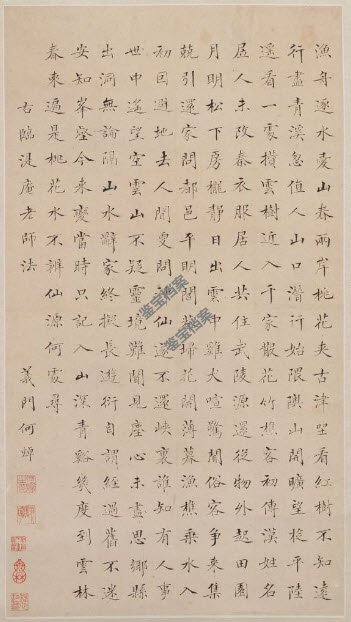 漁舟逐水愛山春兩岸桃花夾古津坐看紅樹不知遠
行盡青溪忽值人山口潛行始隈隩山開曠望旋平陸
遥看一處攢雲樹近入千家散花竹樵客初傳漢姓名
居人未改秦衣服居人共住武陵源還從物外起田園
月明松下房櫳靜日出雲中雞犬喧驚聞俗客爭来集
競引還家問都邑平明閭巷掃花開薄暮漁樵乘水入
初因避地去人間更問仙遂不還峽裏誰知有人事
世中遥望空雲山不疑靈境難聞見塵心未盡思鄉縣
出洞無論隔山水辭家終擬長遊衍自謂經過舊不迷
安知峯壑今来變當時只記入山深青谿幾度到雲林
春来遍是桃花水不辨仙源何處尋
右臨湜庵老師法
義門何焯
鉴宝档案